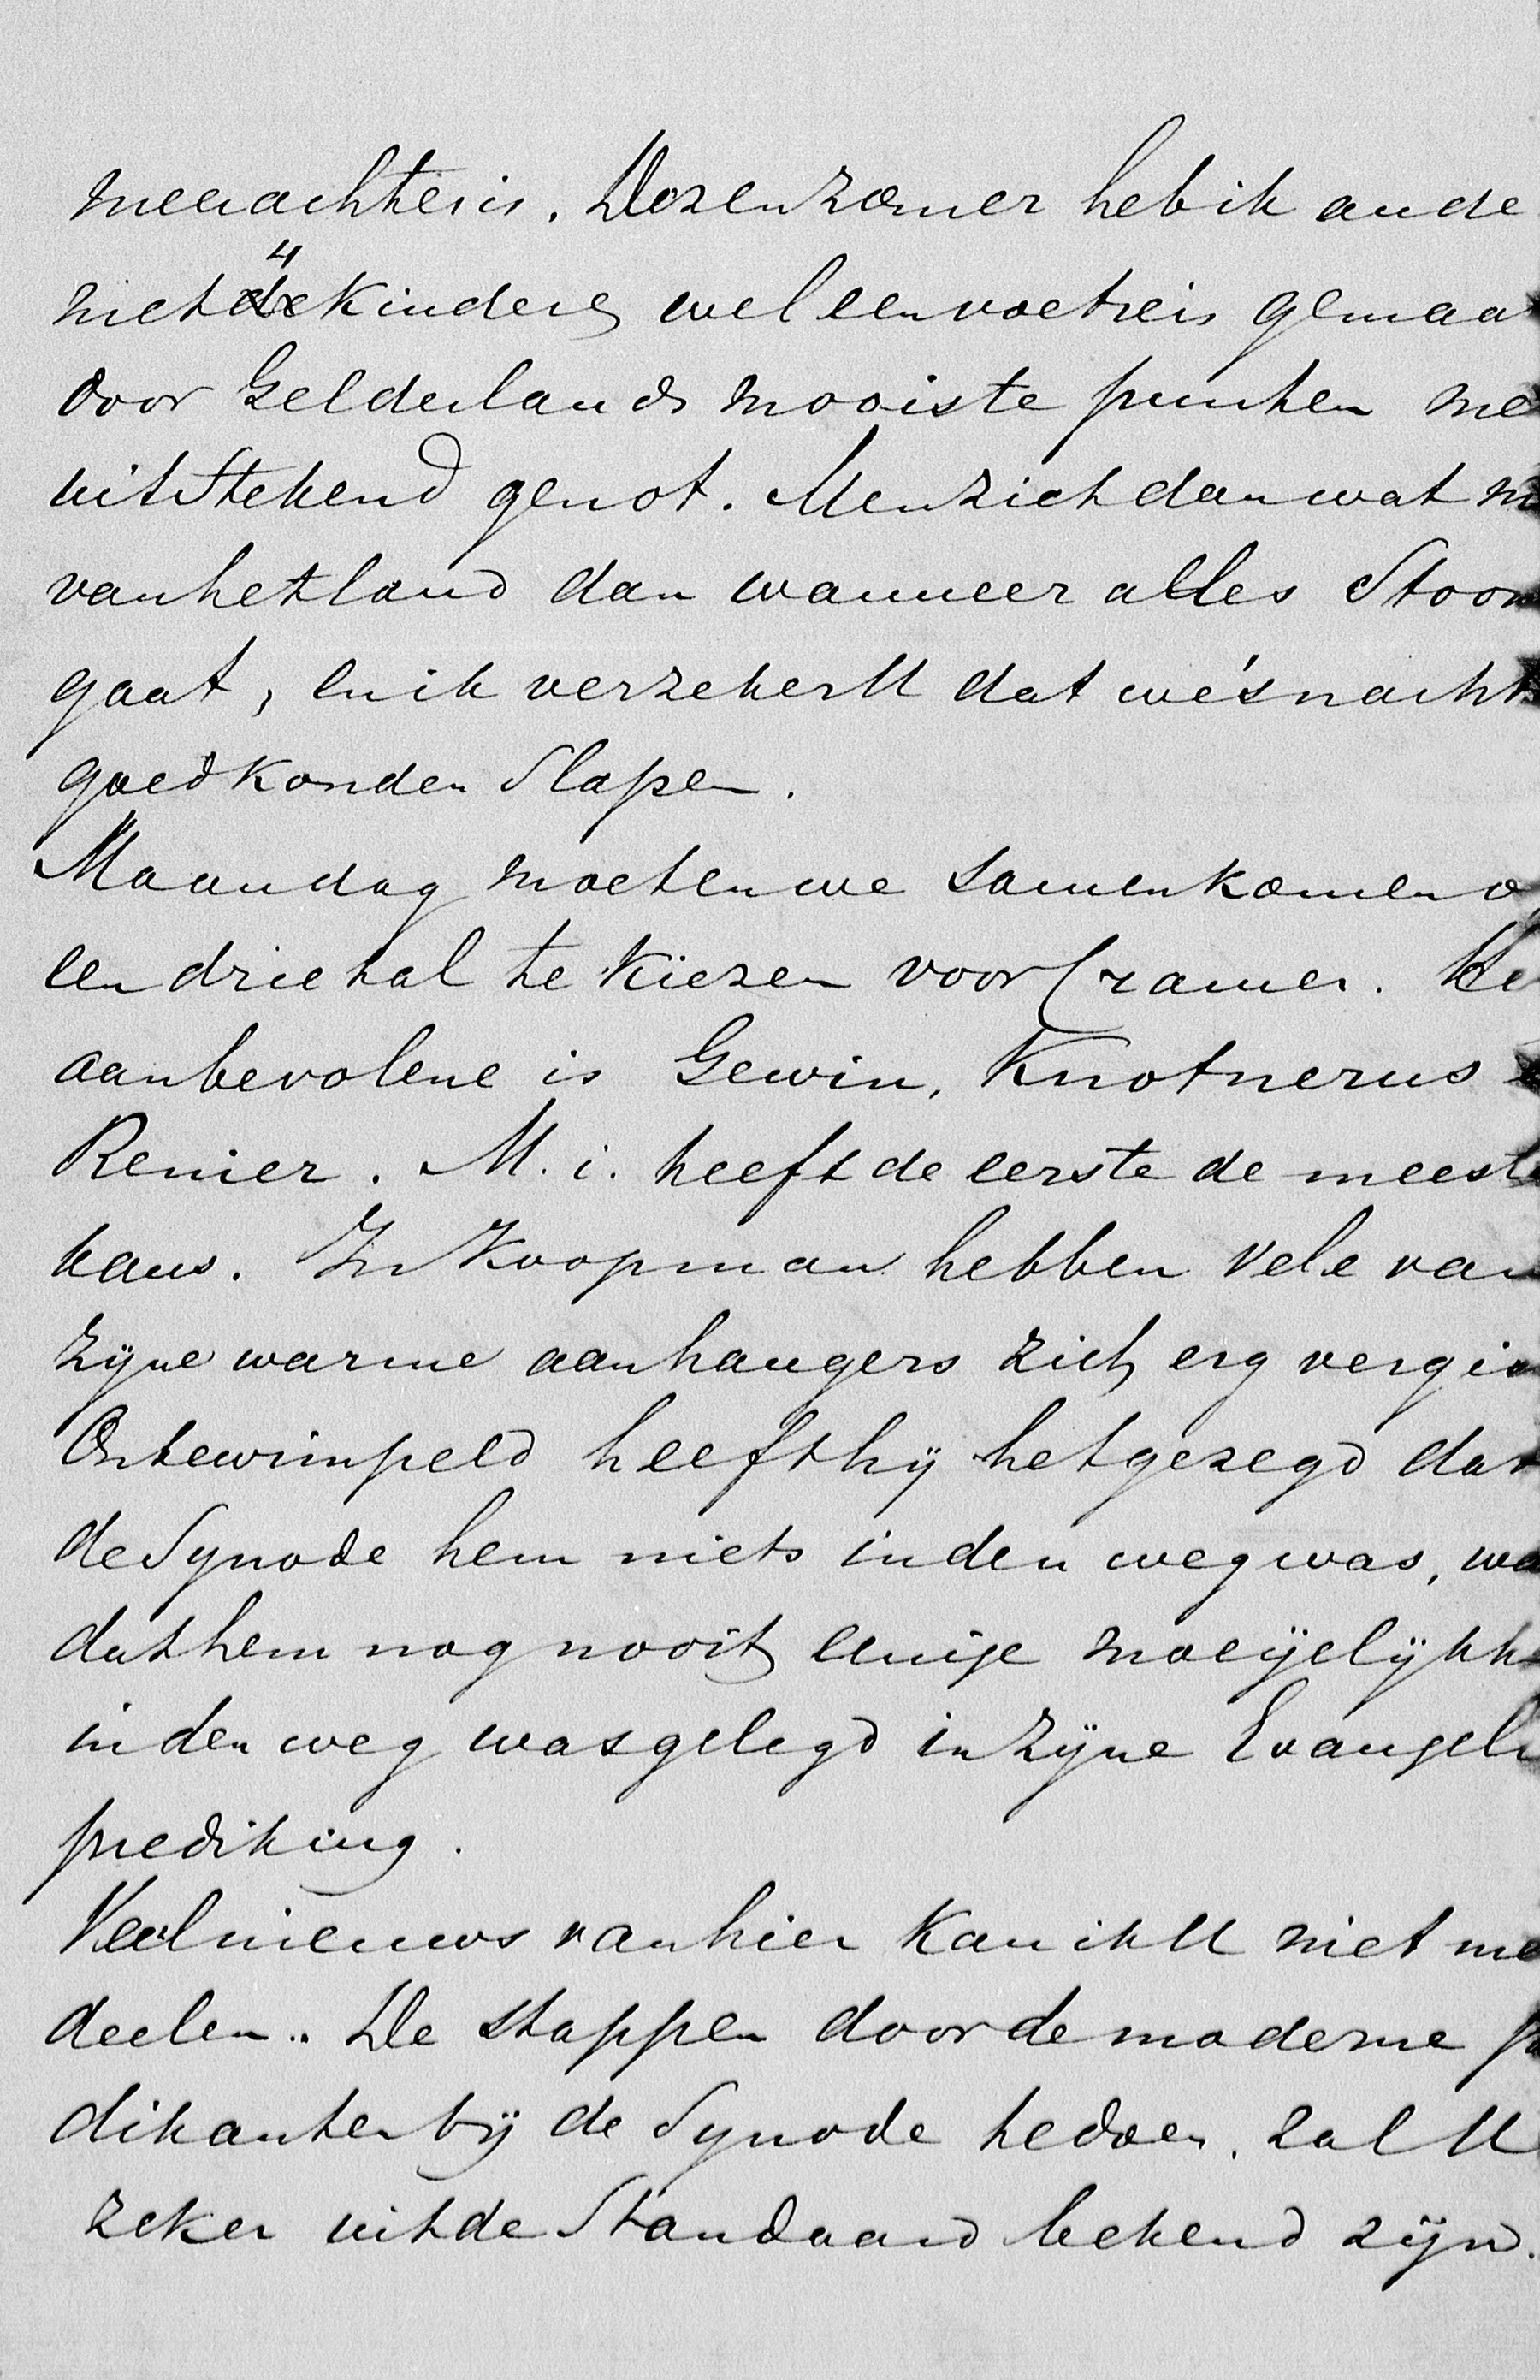 meer achter is. Dezen zomer heb ik ande
met de 4 kinders wel een voetreis gemaa
door Gelderlands mooiste punten me
uitstekend genot. Men ziet dan wat m
van het land dan wanneer alles stoom
gaat, en ik verzeker U dat we 's nachts
goed konden slapen.
Maandag moeten we samenkomen o
een drietal te kiezen voor Cramer. He
aanbevolene is Gewin, Knotnerus
Renier. M. i. heeft de eerste de meeste
kans. In Koopman hebben vele van
zijne warme aanhangers zich erg vergis
Onbewimpeld heeft hij het gezegd dat
de Synode hem niets in den weg was, wa
dat hem nog nooit eenige moeijelijkh
in den weg was gelegd in zijne Evangeli
prediking.
Veel nieuws van hier kan ik U niet me
deelen. De stappen door de moderne p
dikanten bij de Synode gedaan, zal U
zeker uit de Standaard bekend zijn.